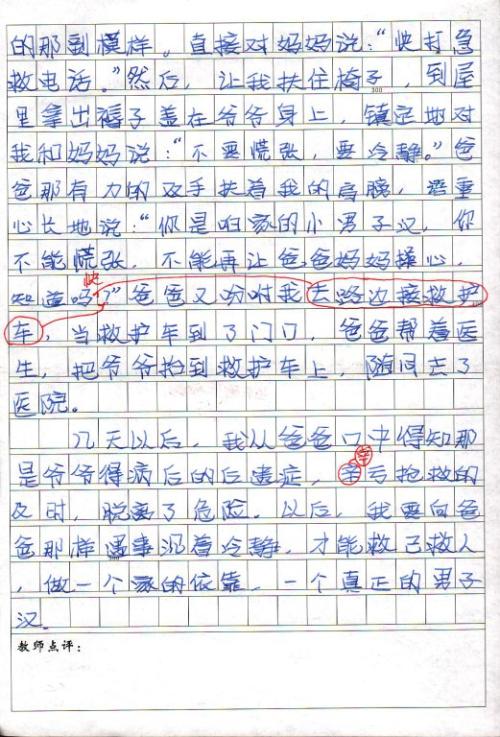 的那到模样。直接对妈妈说：“快打急
救电话。”然后，让我扶住椅子，到屋
里拿出褥子盖在爷爷身上，镇定地对
300
我和妈妈说：“不要慌张，要冷静。”爸
爸那有力的双手扶着我的肩膀，语重
心长地说：“你是咱家的小男子汉，你
不能慌张，不能再让爸爸妈妈操心，
快
知道吗？”爸爸又吩咐我去路边接救护
车，当救护车到了门口，爸爸帮着医
生，把爷爷抬到救护车上，随同去了
医院。
几天以后，我从爸爸口中得知那
幸
是爷爷得病后的后遗症，幸亏抢救的
及时，脱离了危险。以后，我要向爸
爸那样遇事沉着冷静，才能救己救人
，做一个家的依靠，一个真正的男子
汉。
教师点评：